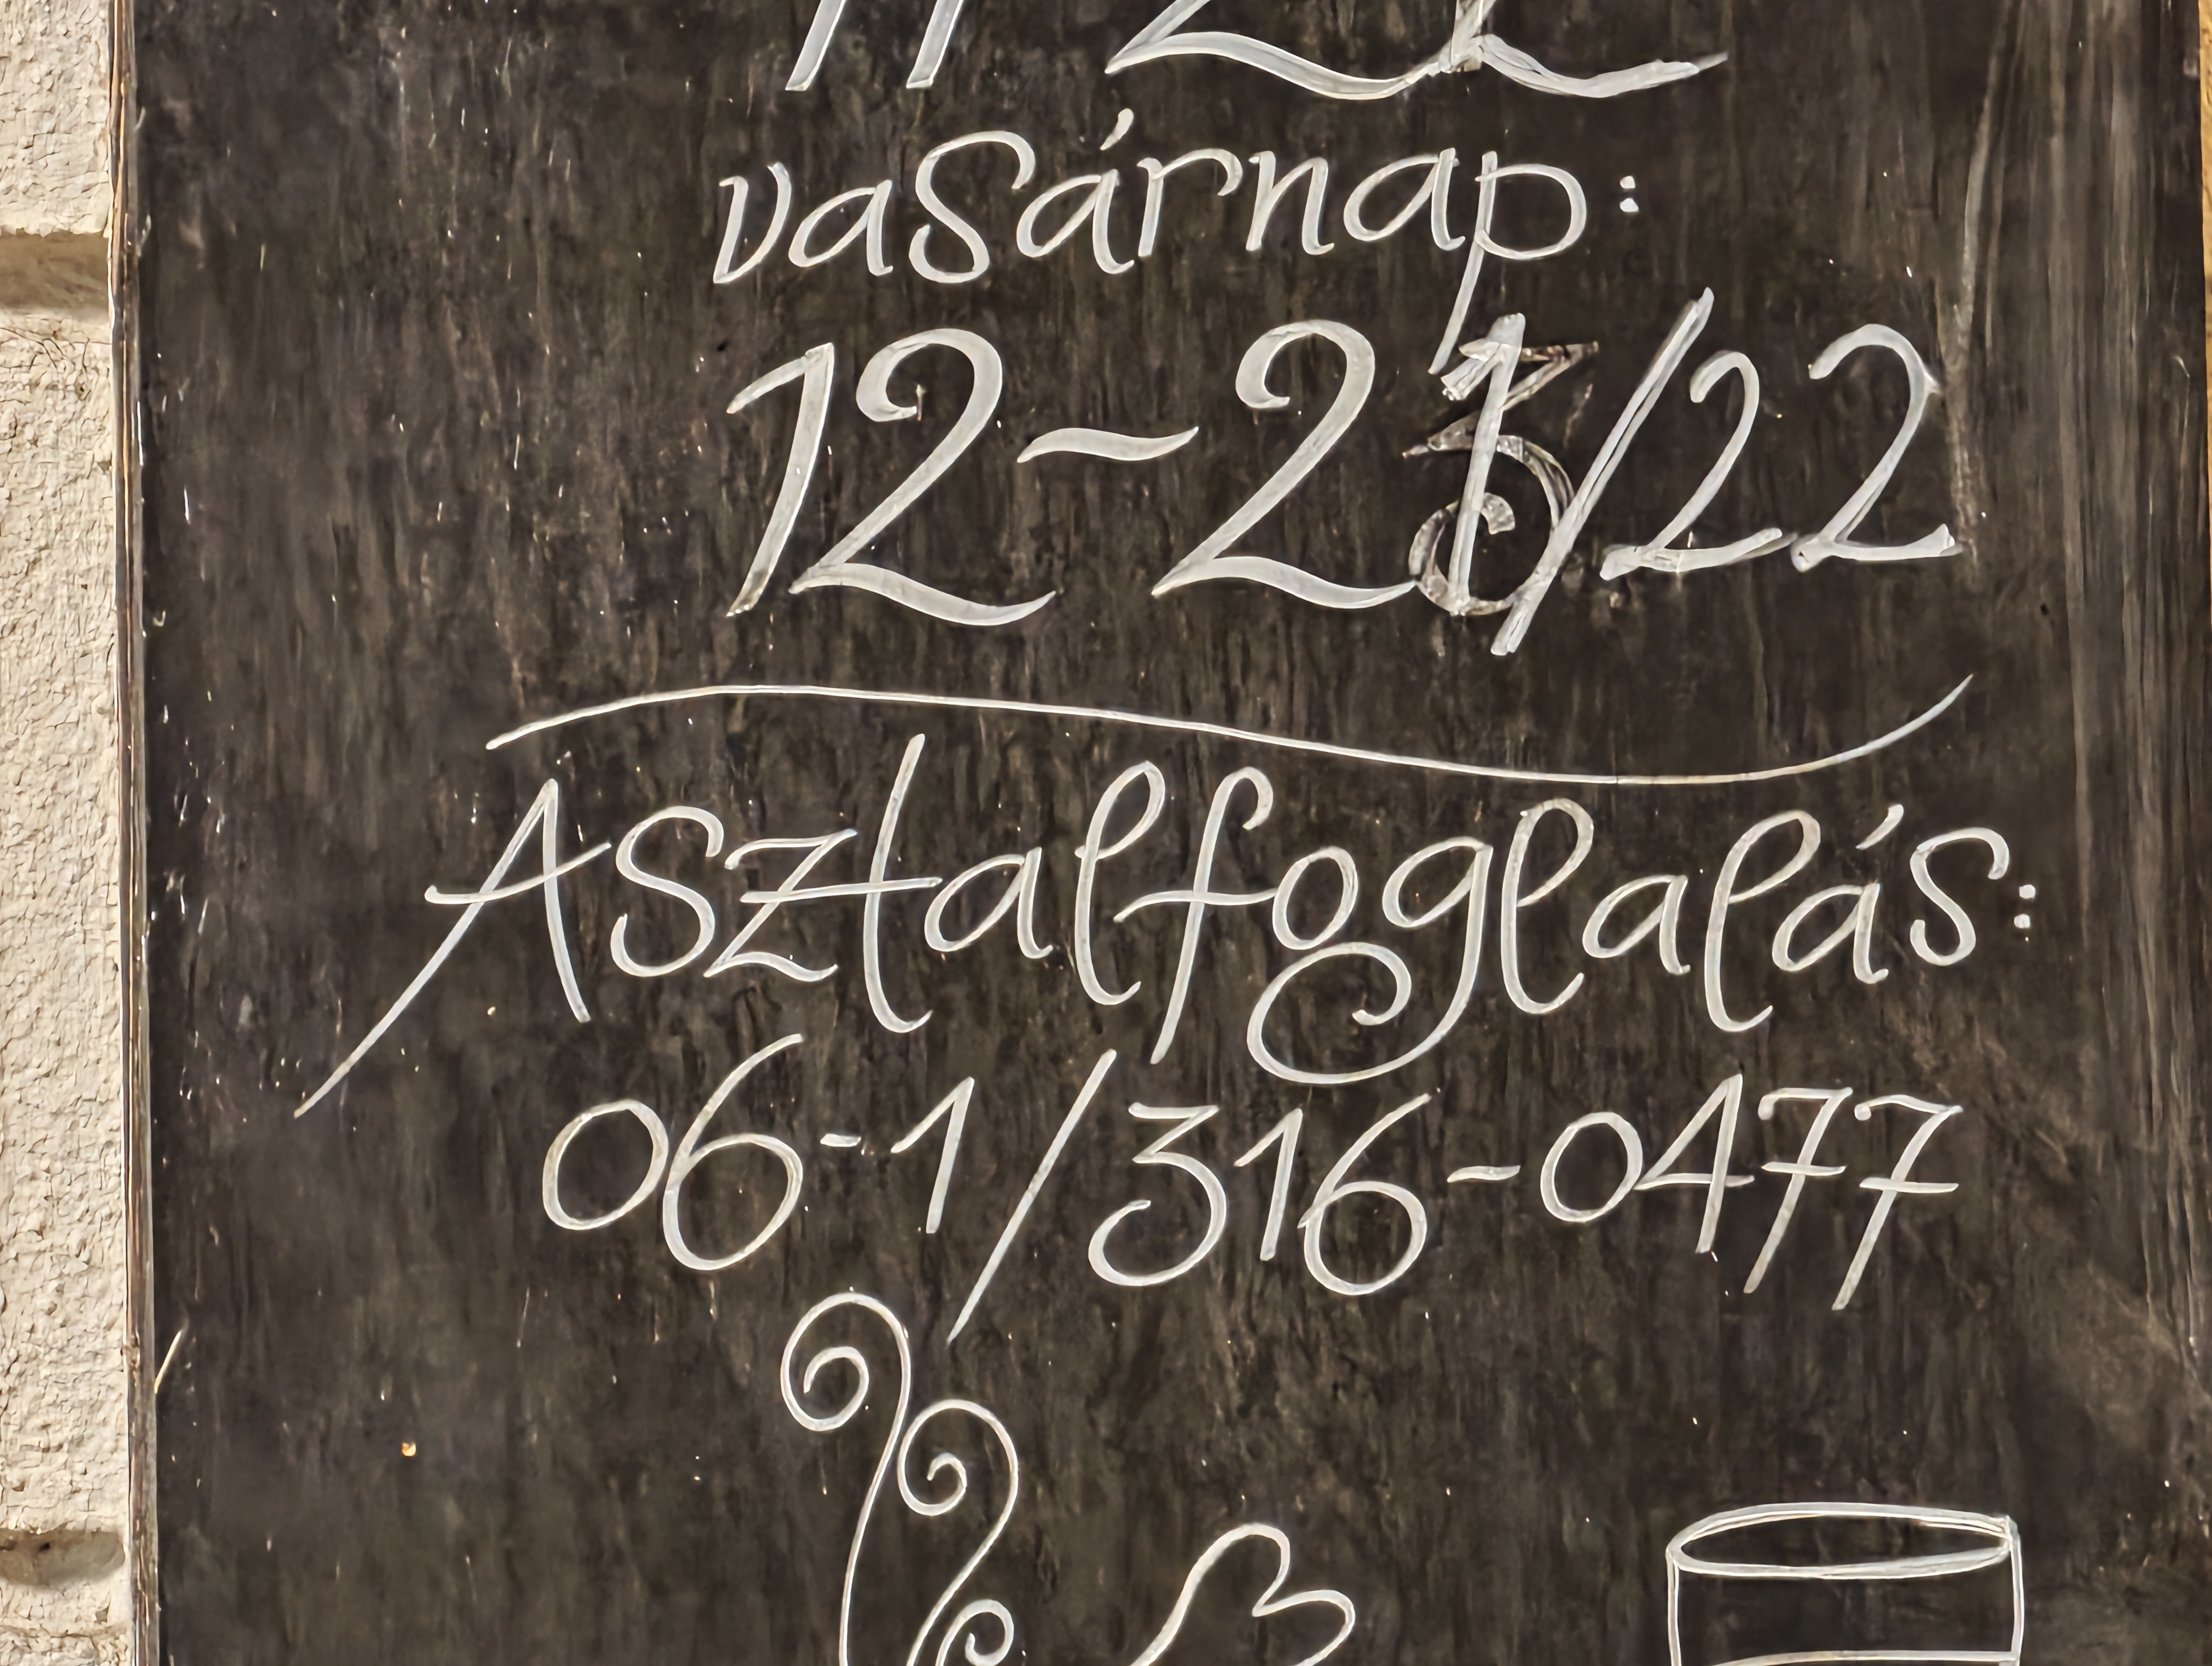 vasárnap:
12-21/22
Asztalfoglalás:
06-1/316-0477